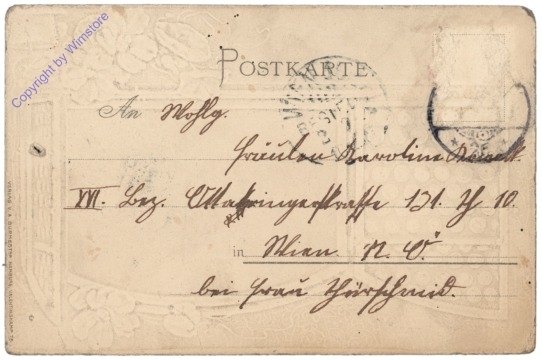 Copyright by Wimstore
POSTKARTE
An Wohlg.
Fräulen Karoline
XVI. Bez. Ottakringerstrasse 131. Th 10.
in Wien. N. Ö.
bei Frau Thürschmid.